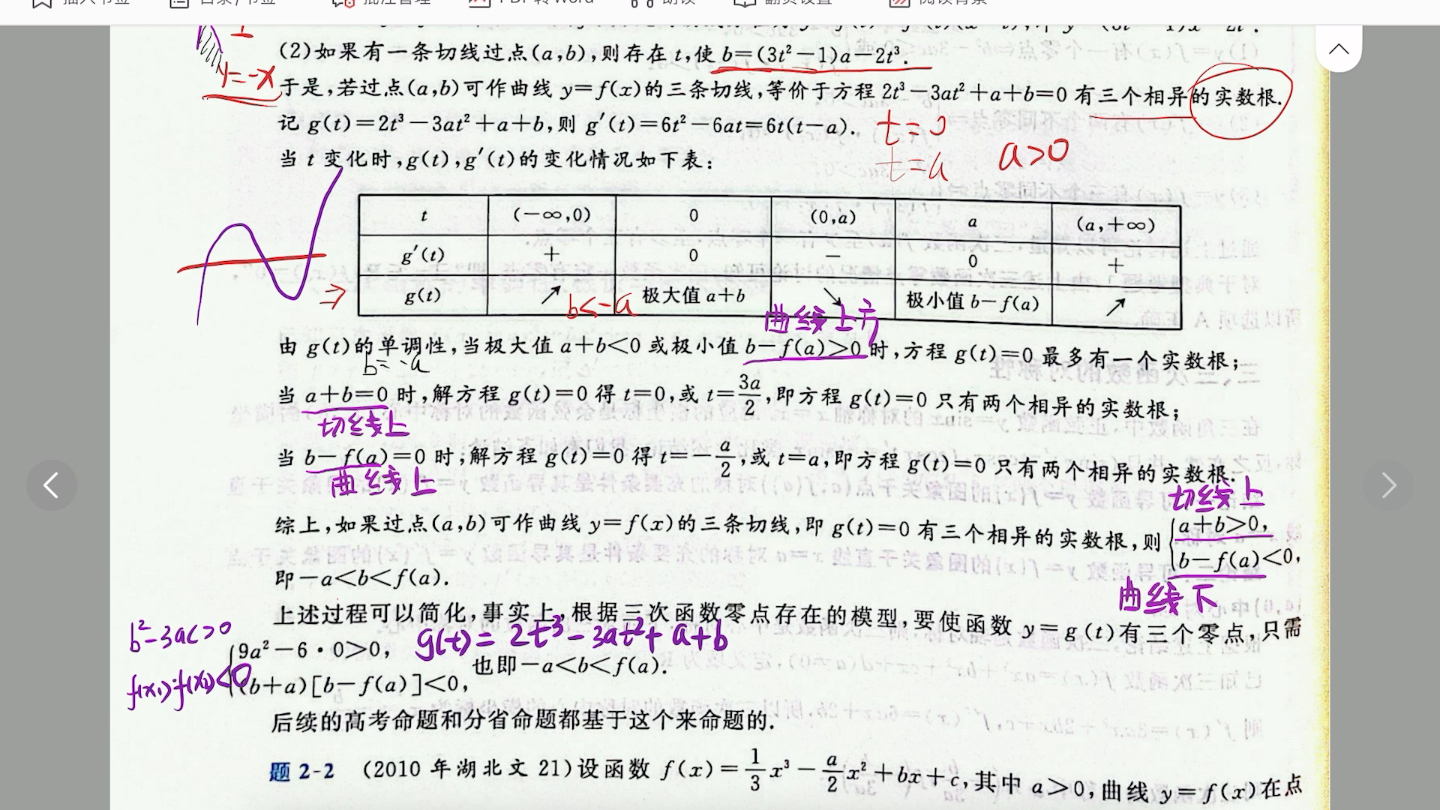 插入书签 目录/书签 批注管理 PDF转Word 朗读 翻页设置 阅读背景
(2)如果有一条切线过点(a,b),则存在 t,使 b=(3t²-1)a-2t³.
y=-x
于是,若过点(a,b)可作曲线 y=f(x)的三条切线,等价于方程 2t³-3at²+a+b=0 有三个相异的实数根.
记 g(t)=2t³-3at²+a+b,则 g′(t)=6t²-6at=6t(t-a). t=0
当 t 变化时,g(t),g′(t)的变化情况如下表: t=a a>0
t (-∞,0) 0 (0,a) a (a,+∞)
g′(t) + 0 - 0 +
g(t) ↗ 极大值 a+b ↘ 极小值 b-f(a) ↗
b<-a
曲线上方
由 g(t)的单调性,当极大值 a+b<0 或极小值 b-f(a)>0 时,方程 g(t)=0 最多有一个实数根;
b=-a
当 a+b=0 时,解方程 g(t)=0 得 t=0,或 t=3a/2,即方程 g(t)=0 只有两个相异的实数根;
切线上
当 b-f(a)=0 时,解方程 g(t)=0 得 t=-a/2,或 t=a,即方程 g(t)=0 只有两个相异的实数根.
曲线上
切线上
综上,如果过点(a,b)可作曲线 y=f(x)的三条切线,即 g(t)=0 有三个相异的实数根,则 {a+b>0,
b-f(a)<0,
即-a<b<f(a).
曲线下
上述过程可以简化,事实上,根据三次函数零点存在的模型,要使函数 y=g(t)有三个零点,只需
b²-3ac>0
g(t)=2t³-3at²+a+b
{9a²-6·0>0,
也即-a<b<f(a).
f(x₁)·f(x₂)<0
(b+a)[b-f(a)]<0,
后续的高考命题和分省命题都基于这个来命题的.
题 2-2 (2010 年湖北文 21)设函数 f(x)=1/3x³-a/2x²+bx+c,其中 a>0,曲线 y=f(x)在点